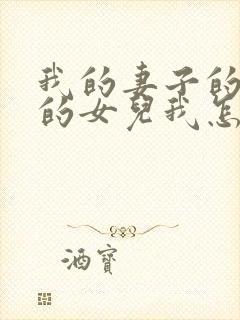 我的妻子的
的女兒我怎
酒寶